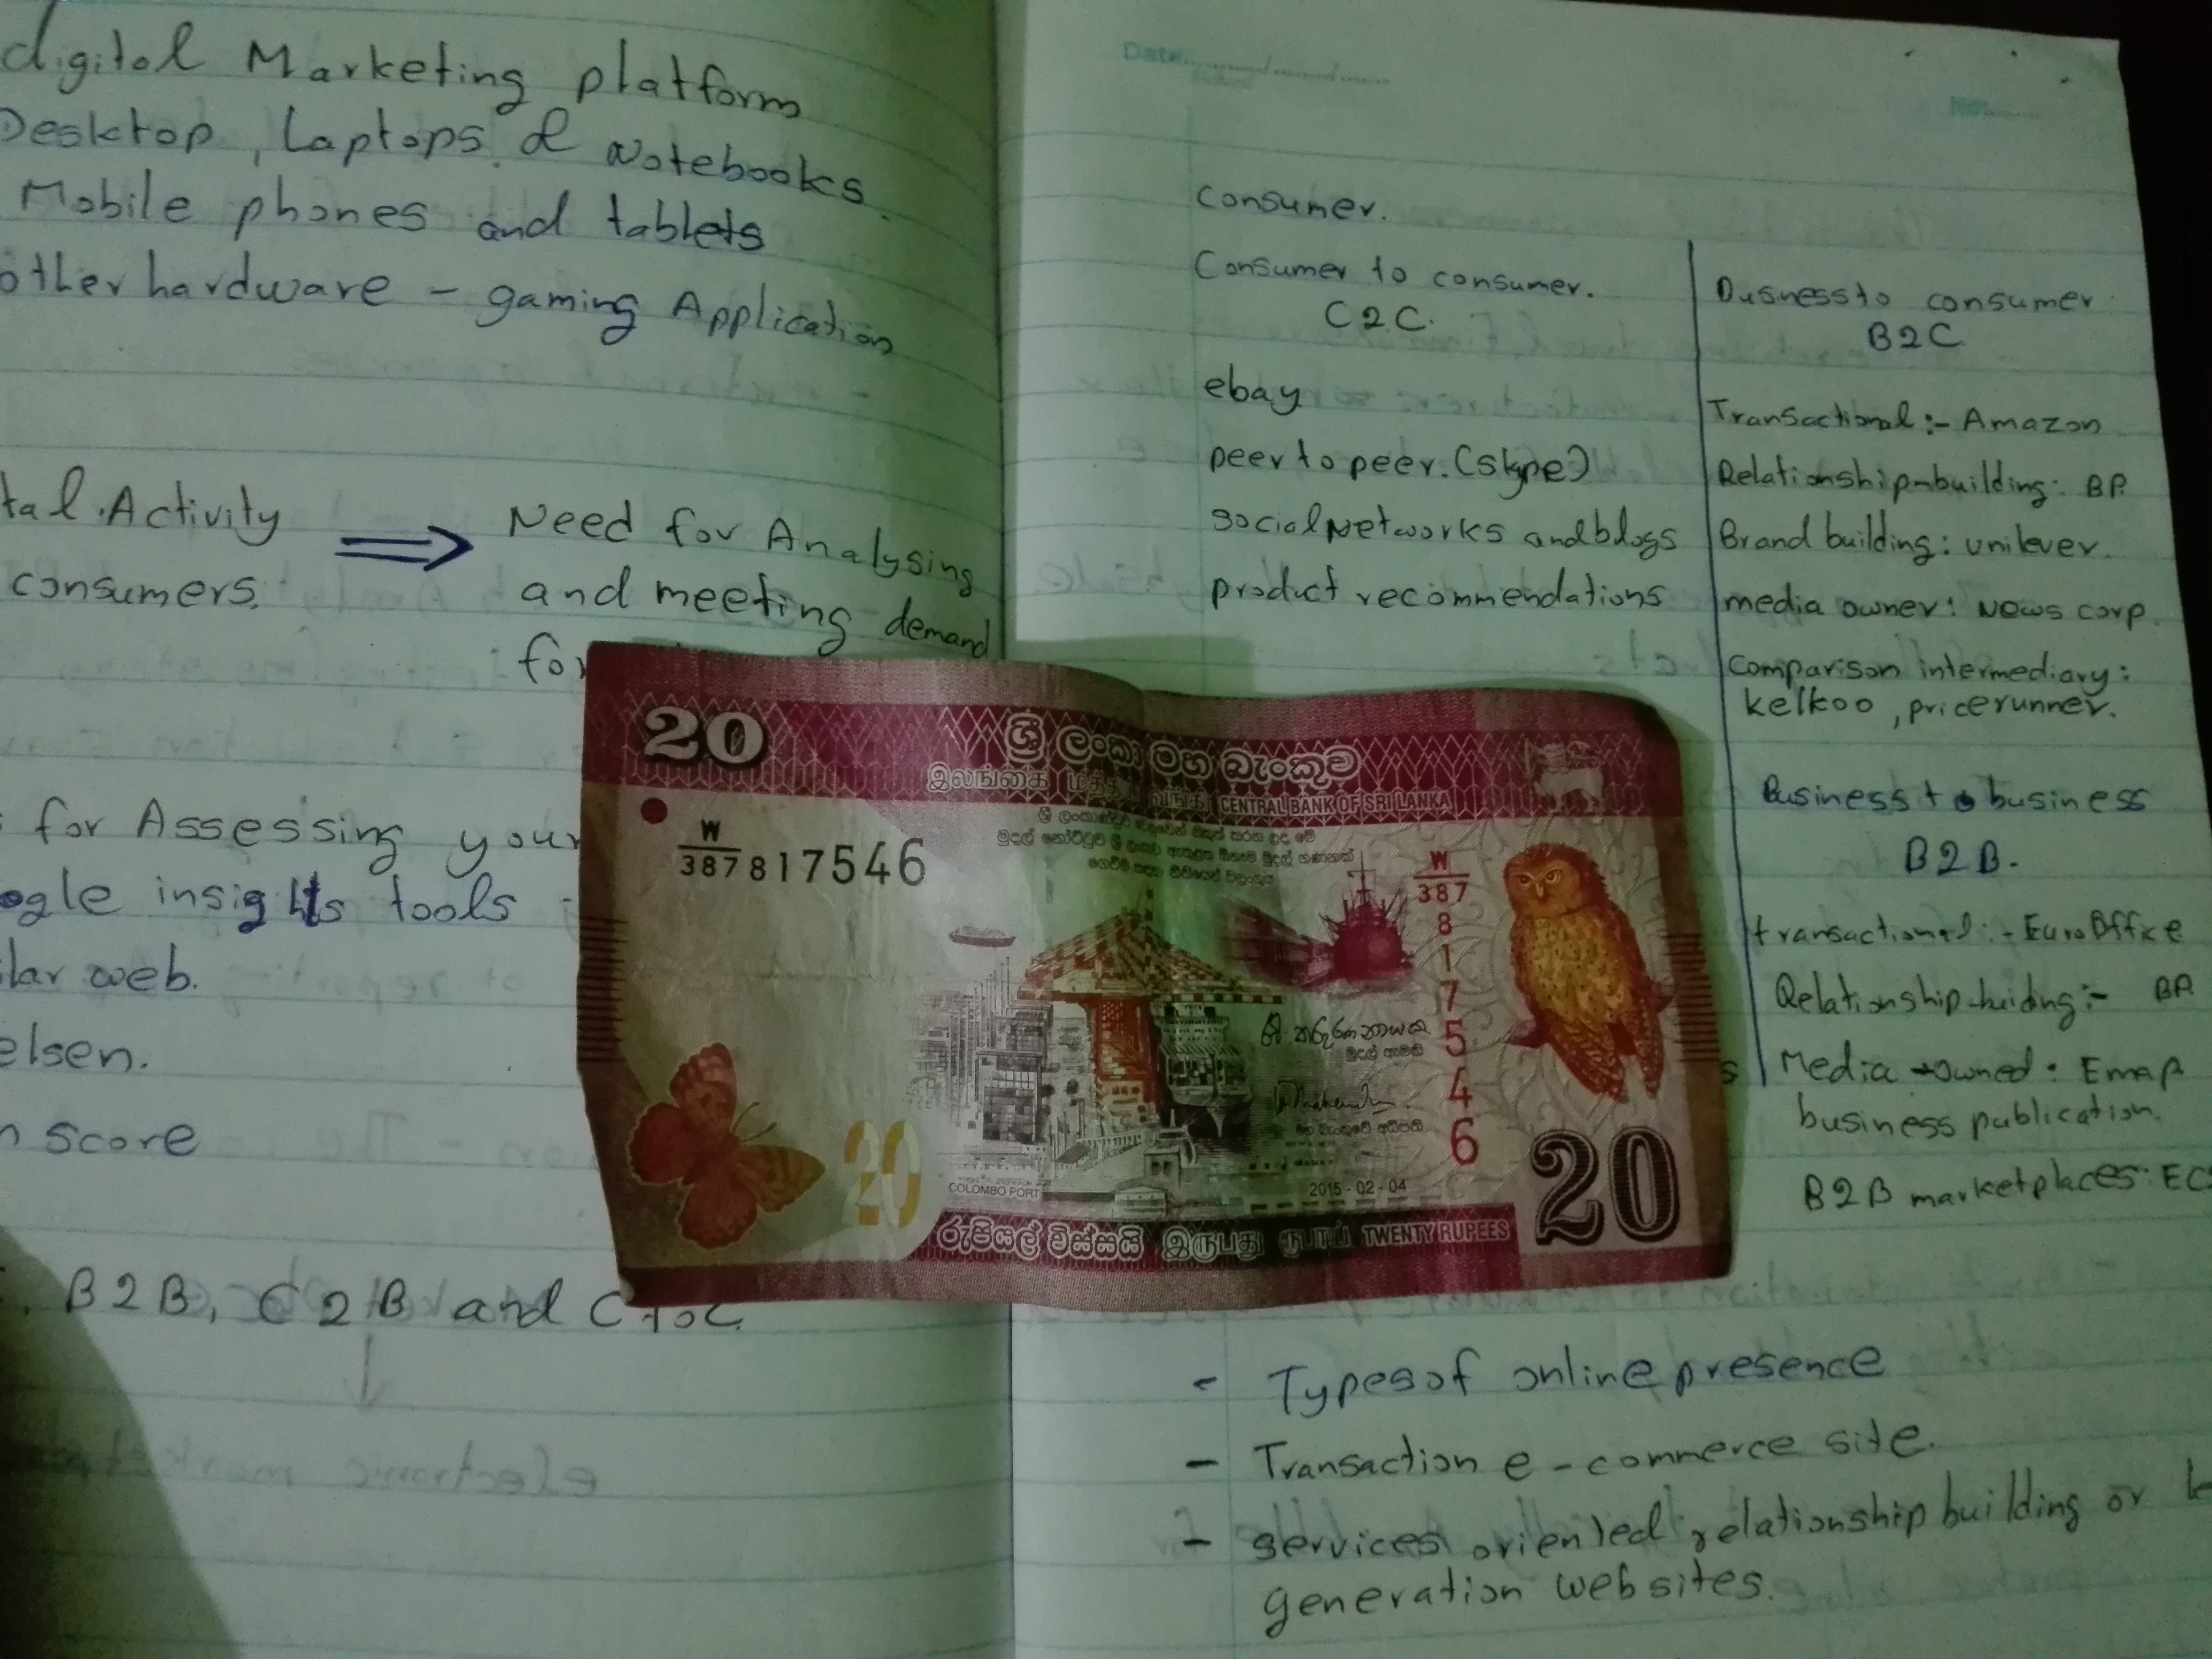 digital Marketing platform
Desktop, Laptops & Notebooks.
Mobile phones and tablets
other hardware - gaming Application
tal Activity
consumers.
⇒ Need for Analysing
and meeting demand
for
for Assessing your
ogle insights tools
ilar web.
elsen.
score
B2B, C2B and CtoC
↓
Date
No
consumer.
Consumer to consumer.
C2C.
ebay
peer to peer. (skype)
social Networks and blogs
product recommendations
Dusiness to consumer
B2C
Transactional :- Amazon
Relationship-building: BP.
Brand building: unilever.
media owner: News corp.
Comparison intermediary:
kelkoo, pricerunner.
Business to business
B2B.
transactional :- EuroOffice
Relationship-huidng :- BP.
Media -owned: Emap
business publication.
B2B marketplaces: EC
- Types of online presence
- Transaction e-commerce site.
- services oriented relationship building or
generation websites.
20
ශ්‍රී ලංකා මහ බැංකුව
இலங்கை மத்திய வங்கி CENTRAL BANK OF SRI LANKA
ශ්‍රී ලංකාණ්ඩුව වෙනුවෙන් නිකුත් කරන ලද මේ
මුදල් නෝට්ටුව ශ්‍රී ලංකාව ඇතුළත ඕනෑම මුදල් ගණනක්
ගෙවීම සඳහා නීතියෙන් වලංගුය
W/387 817546
W/387 817546
මුදල් ඇමති
මහ බැංකුවේ අධිපති
20
COLOMBO PORT
2015-02-04
රුපියල් විස්සයි இருபது ரூபாய் TWENTY RUPEES
20